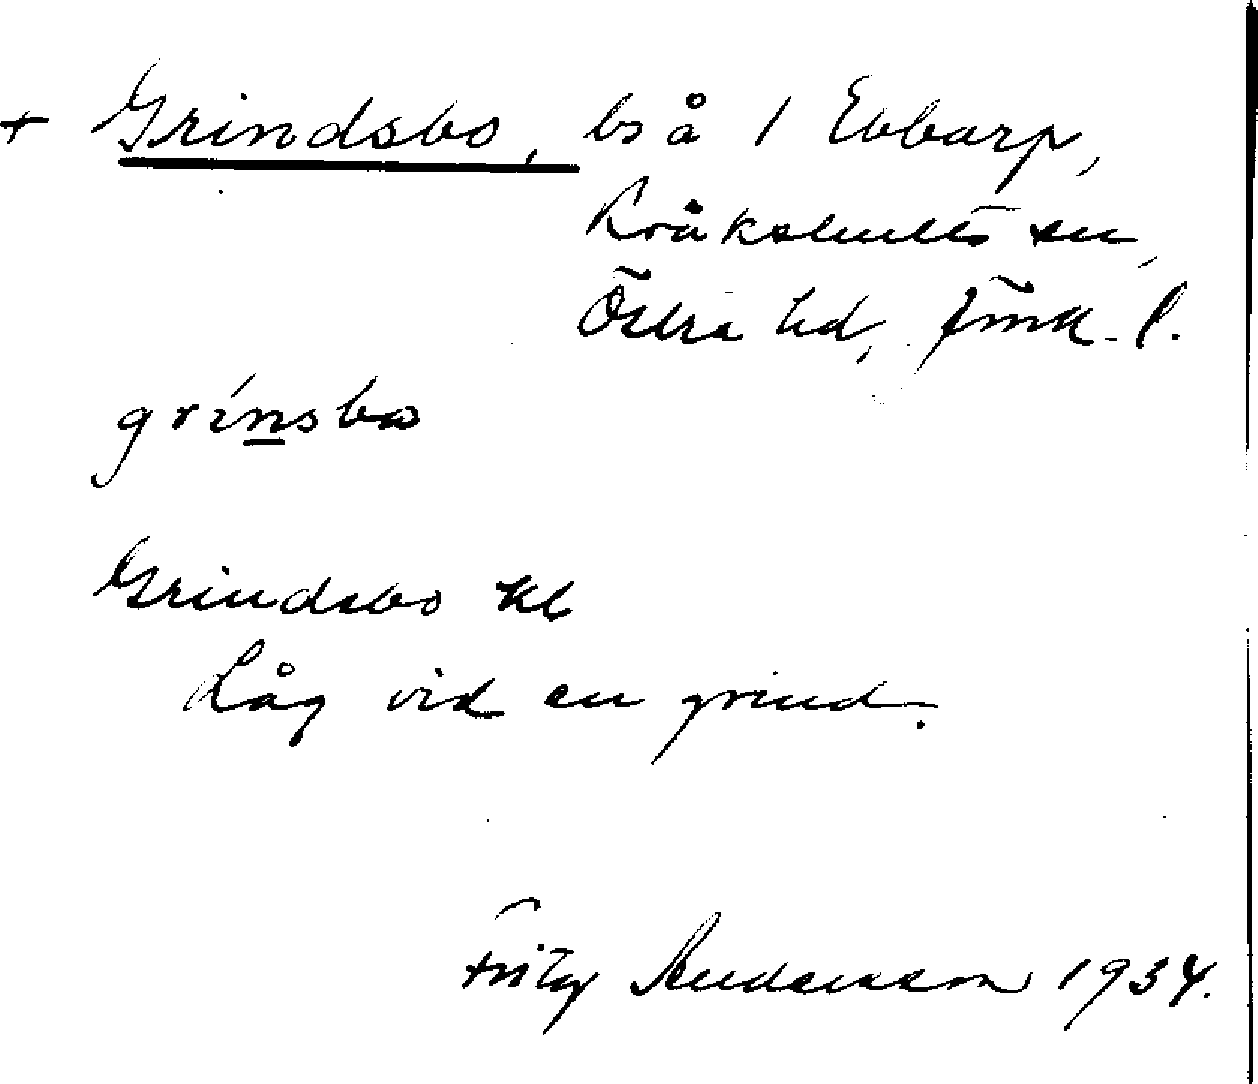 + Grindsbo, bs å 1 Ebbarp,
Kråkshults sn,
Östra hd, Jmk. l.
grinsbo
Grindsbo kl
Låg vid en grind.
Fritz Andersson 1934.